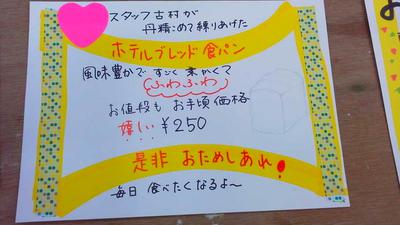 スタッフ古村が
丹精こめて練りあげた
ホテルブレンド食パン
風味豊かで すごく 柔かくて
ふわふわ
お値段も お手頃価格
嬉しい ¥250
是非 おためしあれ!
毎日 食べたくなるよ～